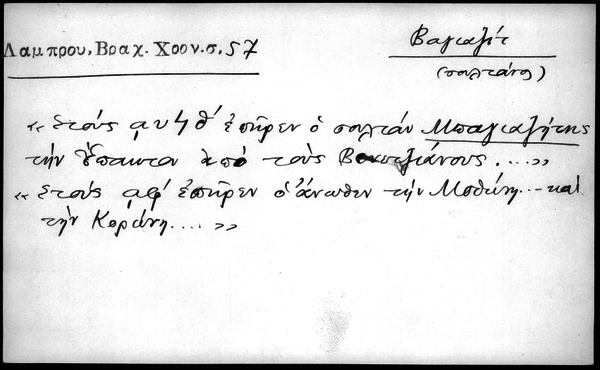 Λαμπρου, Βραχ. Χρον. σ, 57
Βαγιαζήτ
(σουλτάνος)
«Στοὺς αυϟθ´ ἐπῆρεν ὁ σουλτάν Μπαγιαζήτης
τὴν Ἔπακτον ἀπὸ τοὺς Βενετζιάνους....»
«Στοὺς αφ´ ἐπῆρεν ὁ ἄνωθεν τὴν Μοθώνη... καὶ
τὴν Κορώνη....»